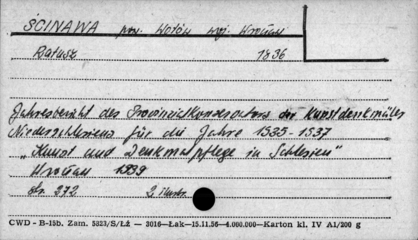 ŚCINAWA pow. Wołów woj. Wrocław
Ratusz 1836
Jahresbericht des Provinzialkonservators der Kunstdenkmäler
Niederschlesiens für die Jahre 1935-1937
"Kunst und Denkmalpflege in Schlesien"
Wrocław 1939
str. 272 2 ilustr.
CWD - B-15b. Zam. 5323/S/Łź — 3016—Łak—15.11.56—4.000.000—Karton kl. IV A1/200 g